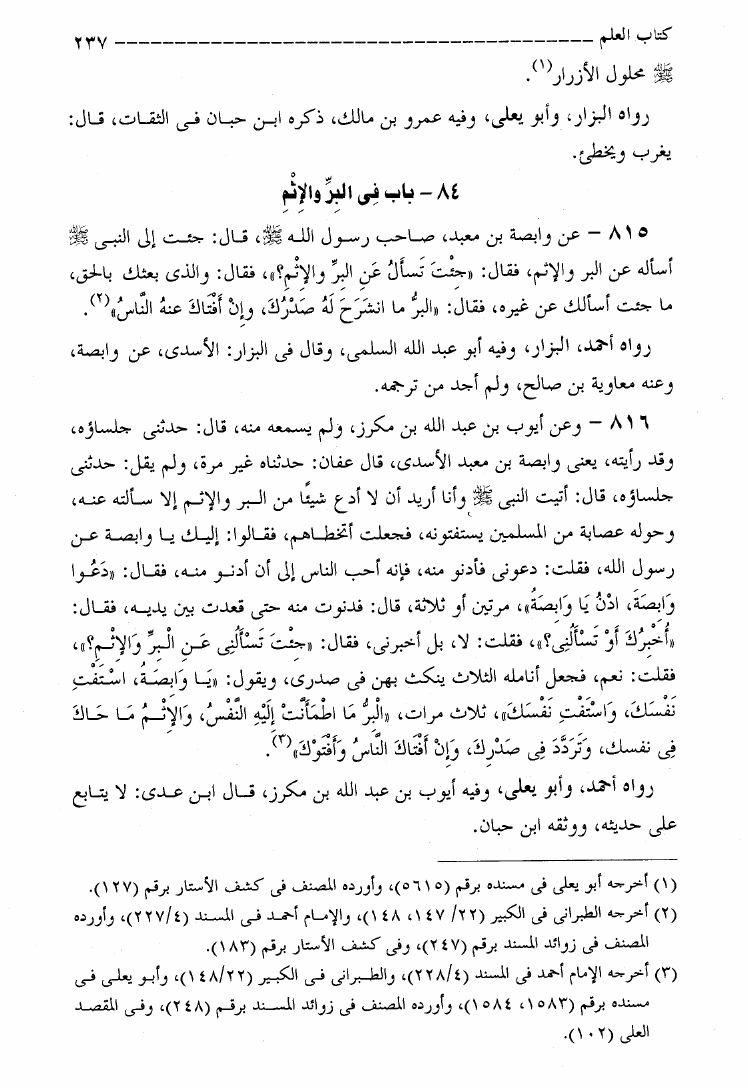 كتاب العلم ــــــــــــــــــــــــــــــــــــــــ ٢٣٧
ﷺ محلول الأزرار(١).
رواه البزار، وأبو يعلى، وفيه عمرو بن مالك، ذكره ابن حبان فى الثقات، قال:
يغرب ويخطئ.
٨٤ – باب فِى البِرِّ والإِثْمِ
٨١٥ – عن وابصة بن معبد، صاحب رسول الله ﷺ، قال: جئت إلى النبى ﷺ
أسأله عن البر والإثم، فقال: «جِئْتَ تَسأَلُ عَنِ البِرِّ والإِثْمِ؟»، فقال: والذى بعثك بالحق،
ما جئت أسألك عن غيره، فقال: «البِرُّ ما انشَرَحَ لَهُ صَدْرُكَ، وإِنْ أَفْتَاكَ عنهُ النَّاسُ»(٢).
رواه أحمد، البزار، وفيه أبو عبد الله السلمى، وقال فى البزار: الأسدى، عن وابصة،
وعنه معاوية بن صالح، ولم أجد من ترجمه.
٨١٦ – وعن أيوب بن عبد الله بن مكرز، ولم يسمعه منه، قال: حدثنى جلساؤه،
وقد رأيته، يعنى وابصة بن معبد الأسدى، قال عفان: حدثناه غير مرة، ولم يقل: حدثنى
جلساؤه، قال: أتيت النبى ﷺ وأنا أريد أن لا أدع شيئًا من البر والإثم إلا سألته عنه،
وحوله عصابة من المسلمين يستفتونه، فجعلت أتخطاهم، فقالوا: إليك يا وابصة عن
رسول الله، فقلت: دعونى فأدنو منه، فإنه أحب الناس إلى أن أدنو منه، فقال: «دَعُوا
وَابِصَةَ، ادْنُ يَا وَابِصَةُ»، مرتين أو ثلاثة، قال: فدنوت منه حتى قعدت بين يديه، فقال:
«أُخْبِرُكَ أَوْ تَسأَلُنِى؟»، فقلت: لا، بل أخبرنى، فقال: «جِئْتَ تَسْأَلُنِى عَنِ الْبِرِّ وَالإِثْمِ؟»،
فقلت: نعم، فجعل أنامله الثلاث ينكث بهن فى صدرى، ويقول: «يَا وَابِصَةُ، اسْتَفْتِ
نَفْسَكَ، وَاسْتَفْتِ نَفْسَكَ»، ثلاث مرات، «الْبِرُّ مَا اطْمَأَنَّتْ إِلَيْهِ النَّفْسُ، وَالإِثْمُ مَا حَاكَ
فِى نفسك، وَتَرَدَّدَ فِى صَدْرِكَ، وَإِنْ أَفْتَاكَ النَّاسُ وَأَفْتَوْكَ»(٣).
رواه أحمد، وأبو يعلى، وفيه أيوب بن عبد الله بن مكرز، قال ابن عدى: لا يتابع
على حديثه، ووثقه ابن حبان.
(١) أخرجه أبو يعلى فى مسنده برقم (٥٦١٥)، وأورده المصنف فى كشف الأستار برقم (١٢٧).
(٢) أخرجه الطبرانى فى الكبير (٢٢/ ١٤٧، ١٤٨)، والإمام أحمد فى المسند (٢٢٧/٤)، وأورده
المصنف فى زوائد المسند برقم (٢٤٧)، وفى كشف الأستار برقم (١٨٣).
(٣) أخرجه الإمام أحمد فى المسند (٢٢٨/٤)، والطبرانى فى الكبير (١٤٨/٢٢)، وأبو يعلى فى
مسنده برقم (١٥٨٣، ١٥٨٤)، وأورده المصنف فى زوائد المسند برقم (٢٤٨)، وفى المقصد
العلى (١٠٢).